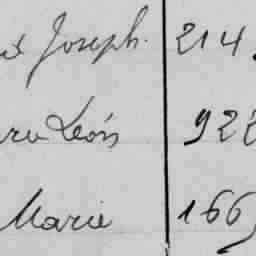 Joseph. 214
León 922
Marie 166